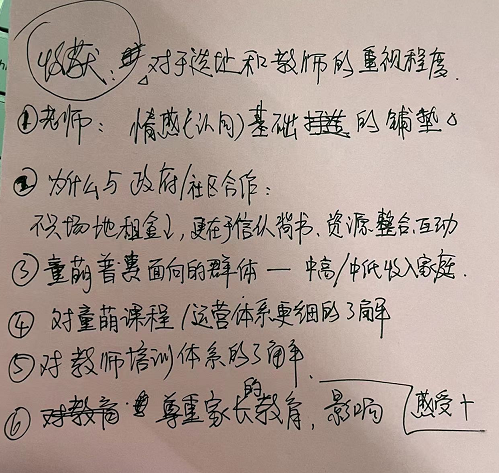 收获: 对于选址和教师的重视程度.
①老师: 情感(认同)基础 的铺垫。
② 为什么与政府/社区合作:
不只场地租金↓, 更在于信认背书、资源整合、互动
③ 童萌普惠面向的群体 — 中高/中低收入家庭.
④ 对童萌课程/运营体系更细的了解
⑤ 对教师培训体系的了解.
⑥ 对教育 尊重家长的教育, 影响 感受+